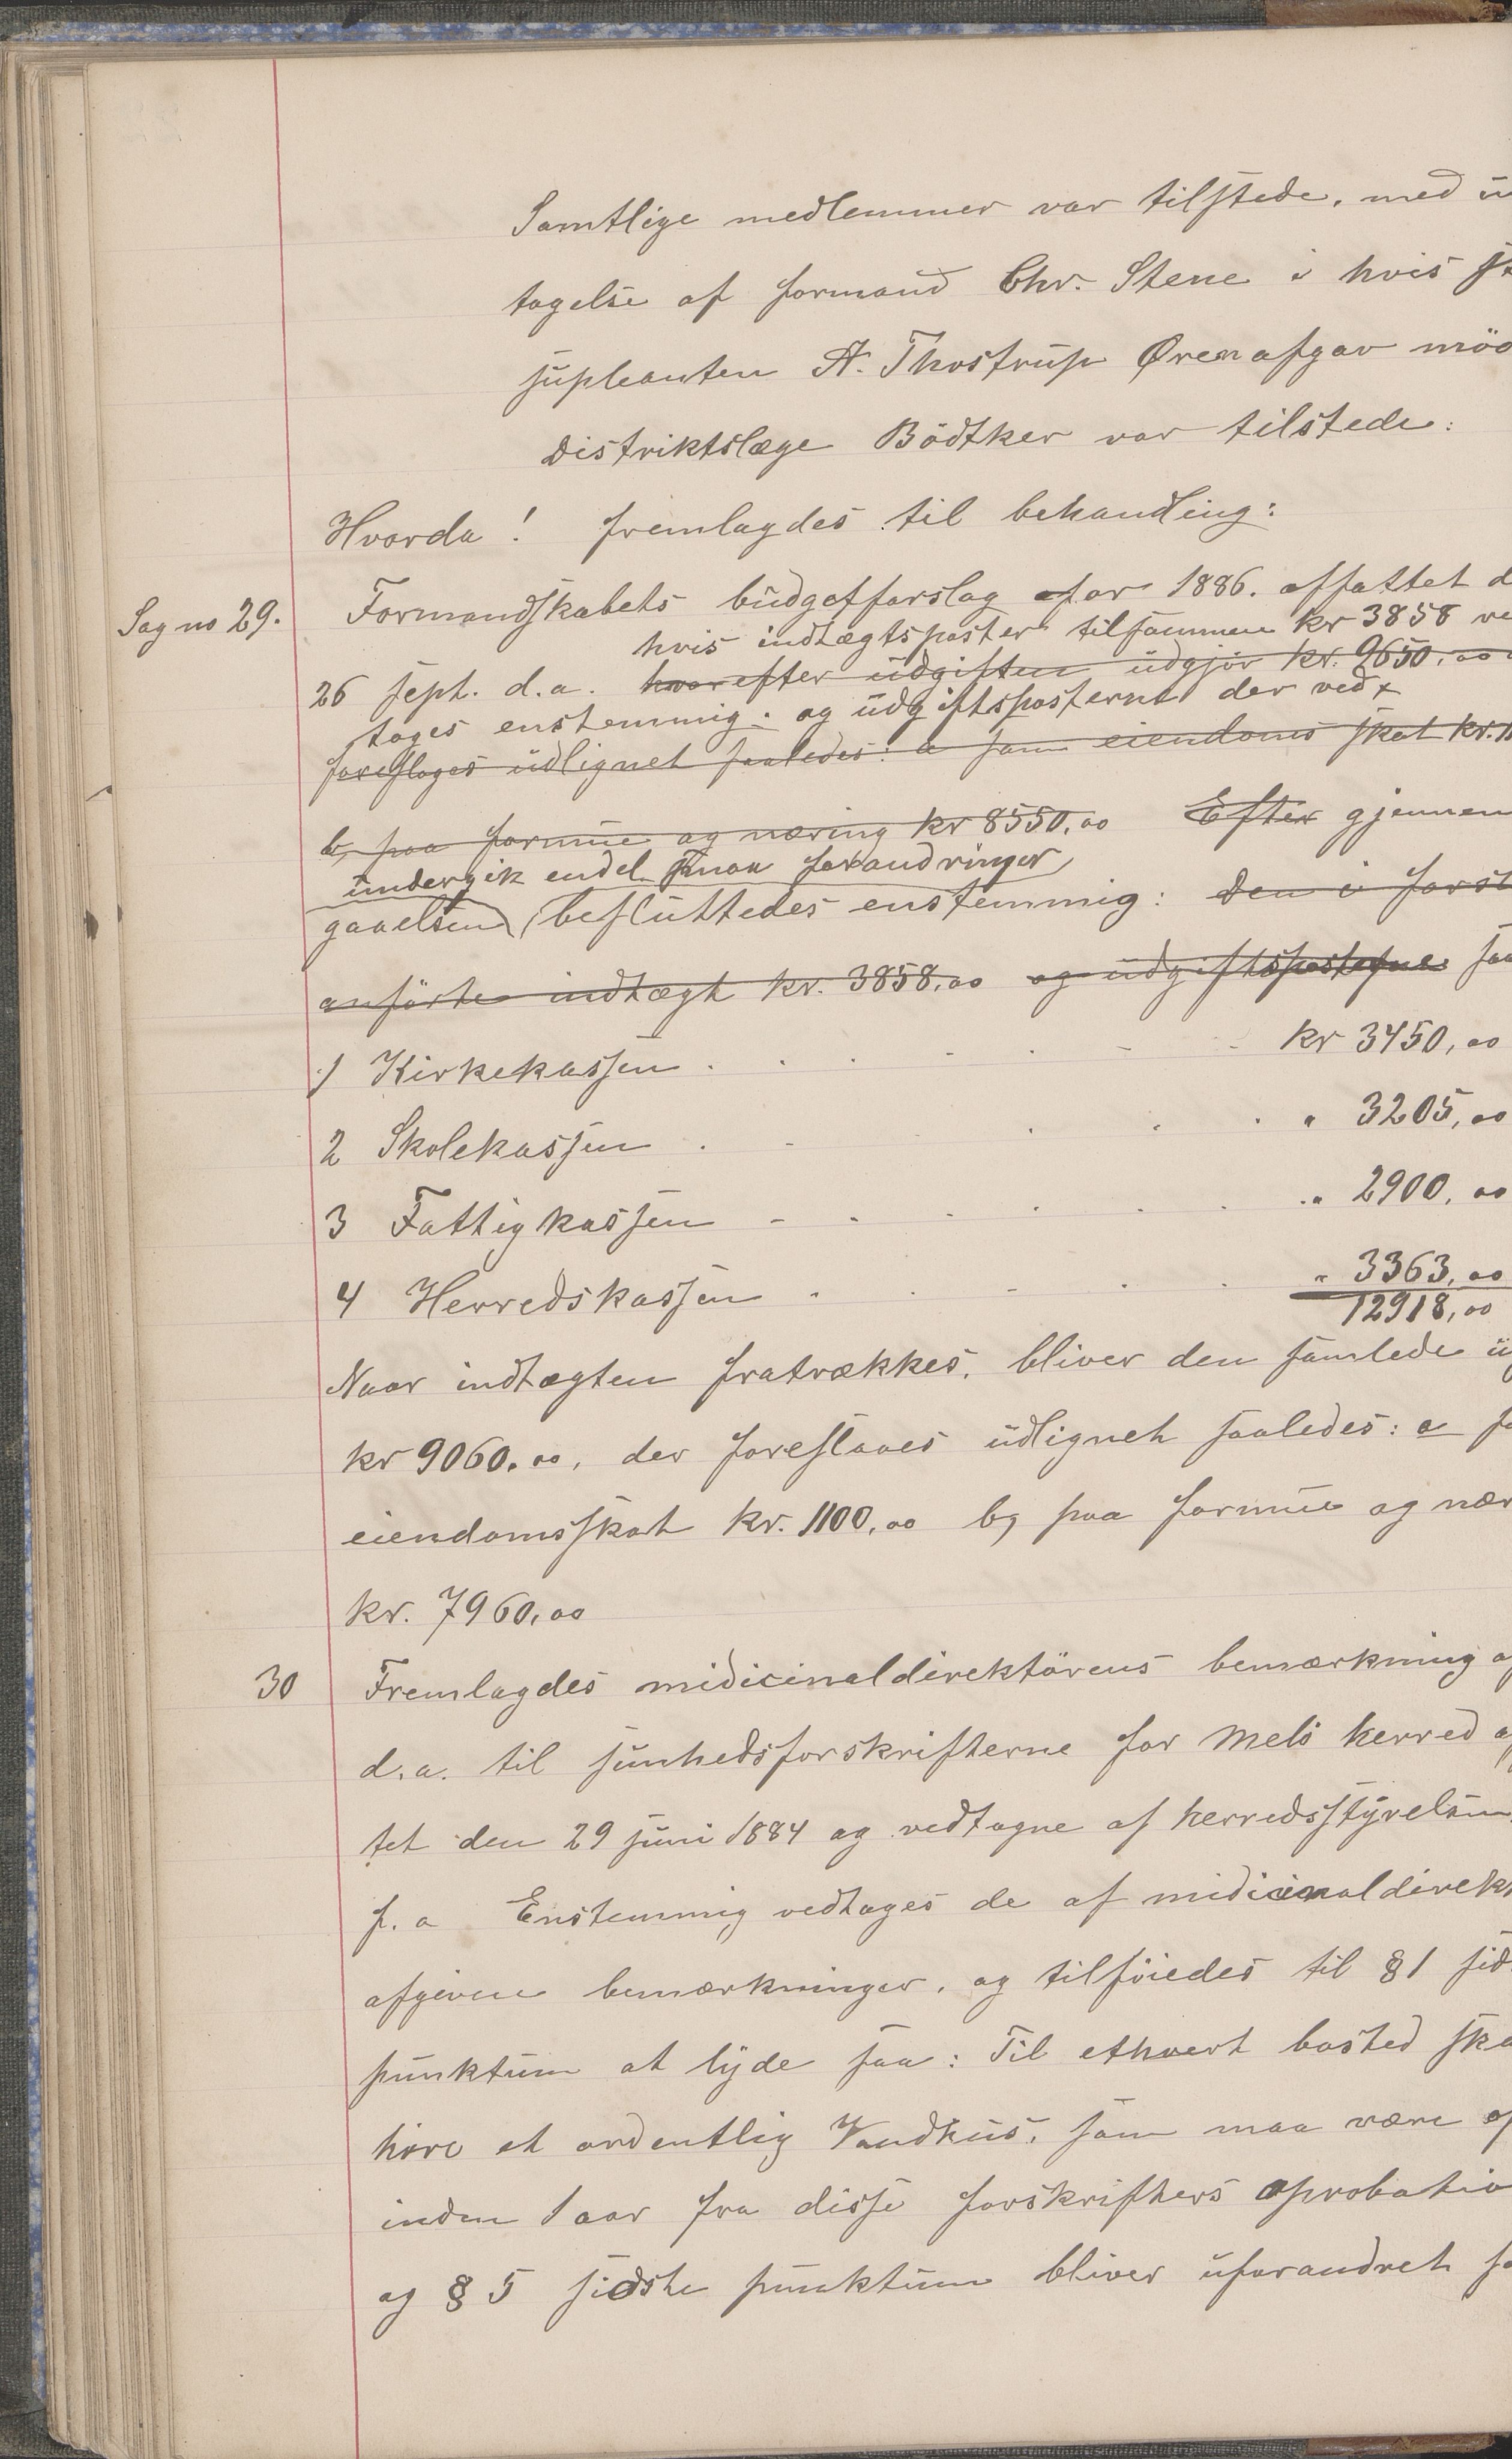 Samtlige medlemmer var tilstede, med u
tagelse af formand Chr. Stene i hvis st
supleanten A. Thostrup Øren afgav mö
Distriktslæge Bödtker var tilstede:
Hvorda! fremlagdes til behandling:
Sag no 29. Formandskabets budgetforslag for 1886. affattet d
hvis indtægtsposter tilsammen kr 3858 ve
26 sept. d.a. hvorefter udgiften udgjör kr. 9650.00
tages enstemmig: og udgiftsposterne der ved
foreslages udlignet saaledes: a som eiendoms skat kr. 11
b, paa formue og næring kr 8550,00 Efter gjennem
undergik endel smaa forandringer
gaaelsen besluttedes enstemmig: den i forsl
anförte indtægt kr. 3858,00 og udgiftsposterne saa
1 Kirkekassen . . . . . - - kr 3450,00
2 Skolekassen . - . . . . " 3205,00
3 Fattigkassen - . . . . . " 2900,00
4 Herredskassen . . - . . " 3363,00
12918,00
Naar indtægten fratrækkes, bliver den samlede u
kr 9060.00, der foreslaaes udlignet saaledes: a so
eiendomsskat kr. 1100,00 b, paa formue og nær
kr. 7960,00
30 Fremlagdes midicinaldirektörens bemærkning af
d.a. til sunhedsforskrifterne for Mels herred af
tet den 29 juni 1884 og vedtagne af herredsstyrelsen
s. a Enstemmig vedtages de af midicinaldirekt
afgivne bemærkninger, og tilföiedes til § 1 sid
punktum at lyde saa: Til ethvert bosted ska
höre et ordentlig Vandhus, som maa være op
inden 1 aar fra disse forskrifters aprobatio
og § 5 sidste punktum bliver uforandret so